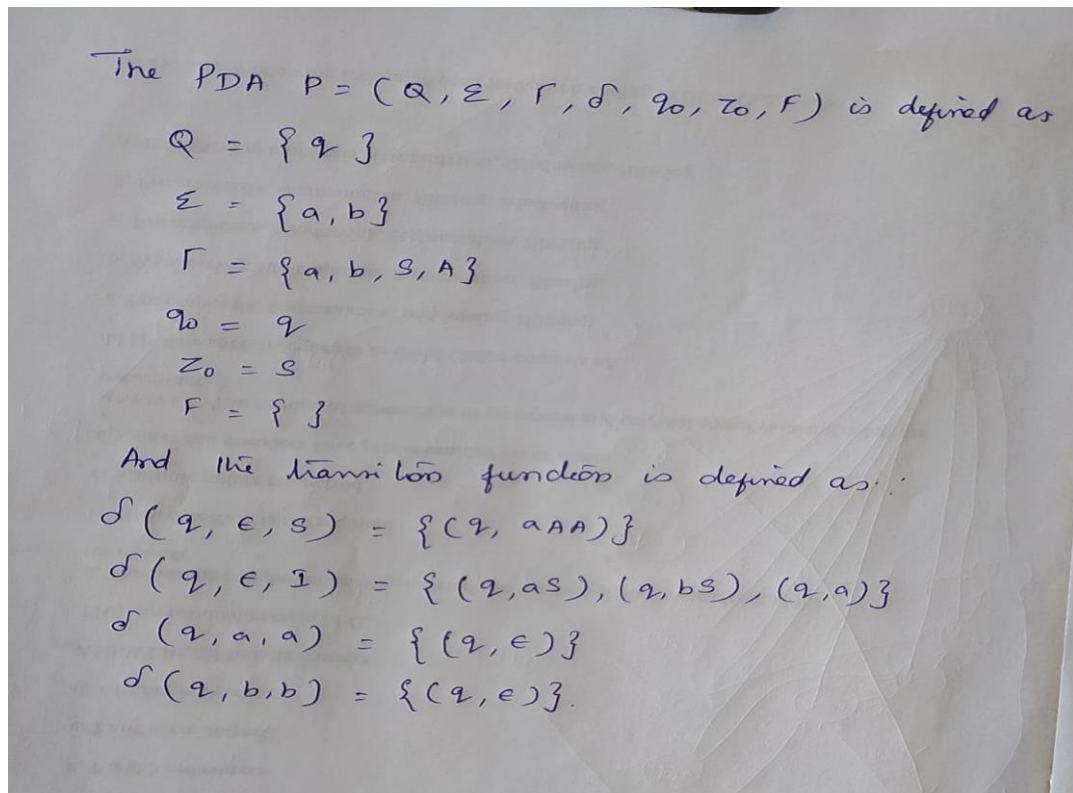 The PDA P = (Q, Σ, Γ, δ, q0, Z0, F) is defined as
Q = {q}
Σ = {a, b}
Γ = {a, b, S, A}
q0 = q
Z0 = S
F = { }
And the transition function is defined as :
δ(q, ε, S) = {(q, aAA)}
δ(q, ε, I) = {(q, aS), (q, bS), (q, a)}
δ(q, a, a) = {(q, ε)}
δ(q, b, b) = {(q, ε)}.